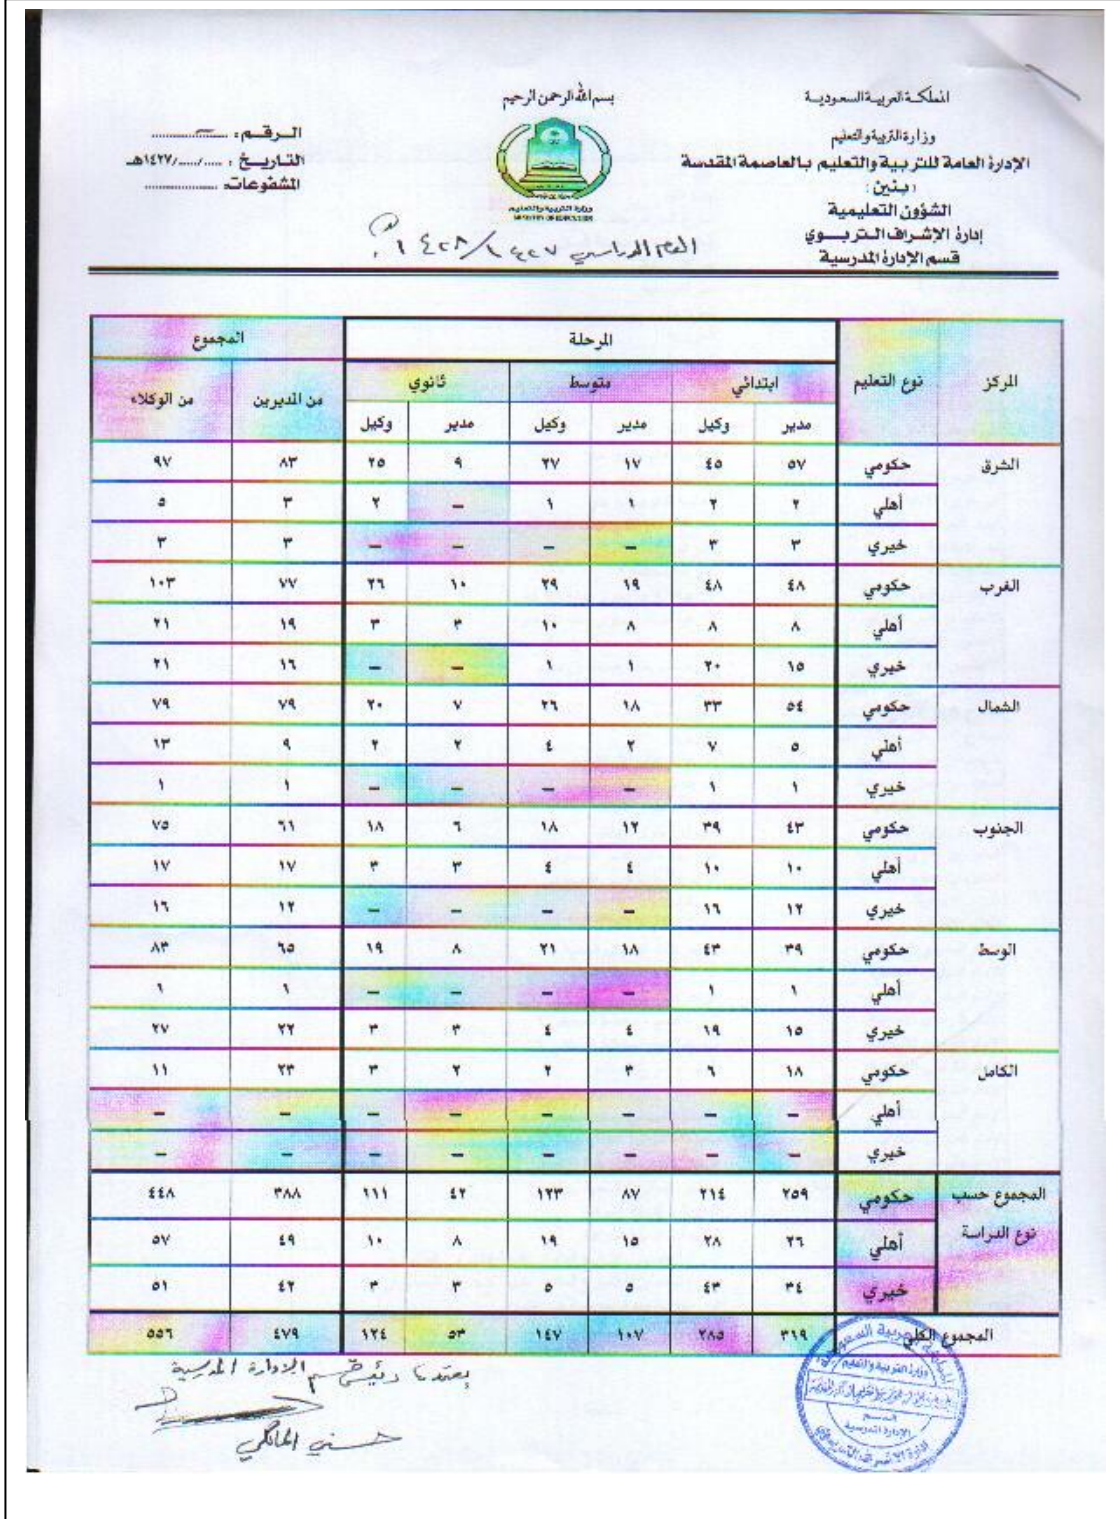 المملكة العربية السعودية
وزارة التربية والتعليم
الإدارة العامة للتربية والتعليم بالعاصمة المقدسة
(بنين)
الشؤون التعليمية
إدارة الإشراف التربوي
قسم الإدارة المدرسية
بسم الله الرحمن الرحيم
وزارة التربية والتعليم
MINISTRY OF EDUCATION
الرقم :
التاريخ : ...../...../١٤٢٧هـ
المشفوعات:
العام الدراسي ١٤٢٧/١٤٢٨هـ
المركز نوع التعليم المرحلة المجموع
ابتدائي متوسط ثانوي من المديرين من الوكلاء
مدير وكيل مدير وكيل مدير وكيل
الشرق حكومي ٥٧ ٤٥ ١٧ ٢٧ ٩ ٢٥ ٨٣ ٩٧
أهلي ٢ ٢ ١ ١ – ٢ ٣ ٥
خيري ٣ ٣ – – – – ٣ ٣
الغرب حكومي ٤٨ ٤٨ ١٩ ٢٩ ١٠ ٢٦ ٧٧ ١٠٣
أهلي ٨ ٨ ٨ ١٠ ٣ ٣ ١٩ ٢١
خيري ١٥ ٢٠ ١ ١ – – ١٦ ٢١
الشمال حكومي ٥٤ ٣٣ ١٨ ٢٦ ٧ ٢٠ ٧٩ ٧٩
أهلي ٥ ٧ ٢ ٤ ٢ ٢ ٩ ١٣
خيري ١ ١ – – – – ١ ١
الجنوب حكومي ٤٣ ٣٩ ١٢ ١٨ ٦ ١٨ ٦١ ٧٥
أهلي ١٠ ١٠ ٤ ٤ ٣ ٣ ١٧ ١٧
خيري ١٢ ١٦ – – – – ١٢ ١٦
الوسط حكومي ٣٩ ٤٣ ١٨ ٢١ ٨ ١٩ ٦٥ ٨٣
أهلي ١ ١ – – – – ١ ١
خيري ١٥ ١٩ ٤ ٤ ٣ ٣ ٢٢ ٢٧
الكامل حكومي ١٨ ٦ ٣ ٢ ٢ ٣ ٢٣ ١١
أهلي – – – – – – – –
خيري – – – – – – – –
المجموع حسب نوع الدراسة حكومي ٢٥٩ ٢١٤ ٨٧ ١٢٣ ٤٢ ١١١ ٣٨٨ ٤٤٨
أهلي ٢٦ ٢٨ ١٥ ١٩ ٨ ١٠ ٤٩ ٥٧
خيري ٣٤ ٤٣ ٥ ٥ ٣ ٣ ٤٢ ٥١
المجموع الكلي ٣١٩ ٢٨٥ ١٠٧ ١٤٧ ٥٣ ١٢٤ ٤٧٩ ٥٥٦
يعتمد رئيس قسم الإدارة المدرسية
حسني المالكي
المملكة العربية السعودية
وزارة التربية والتعليم
قسم
الإدارة المدرسية
إدارة الإشراف التربوي